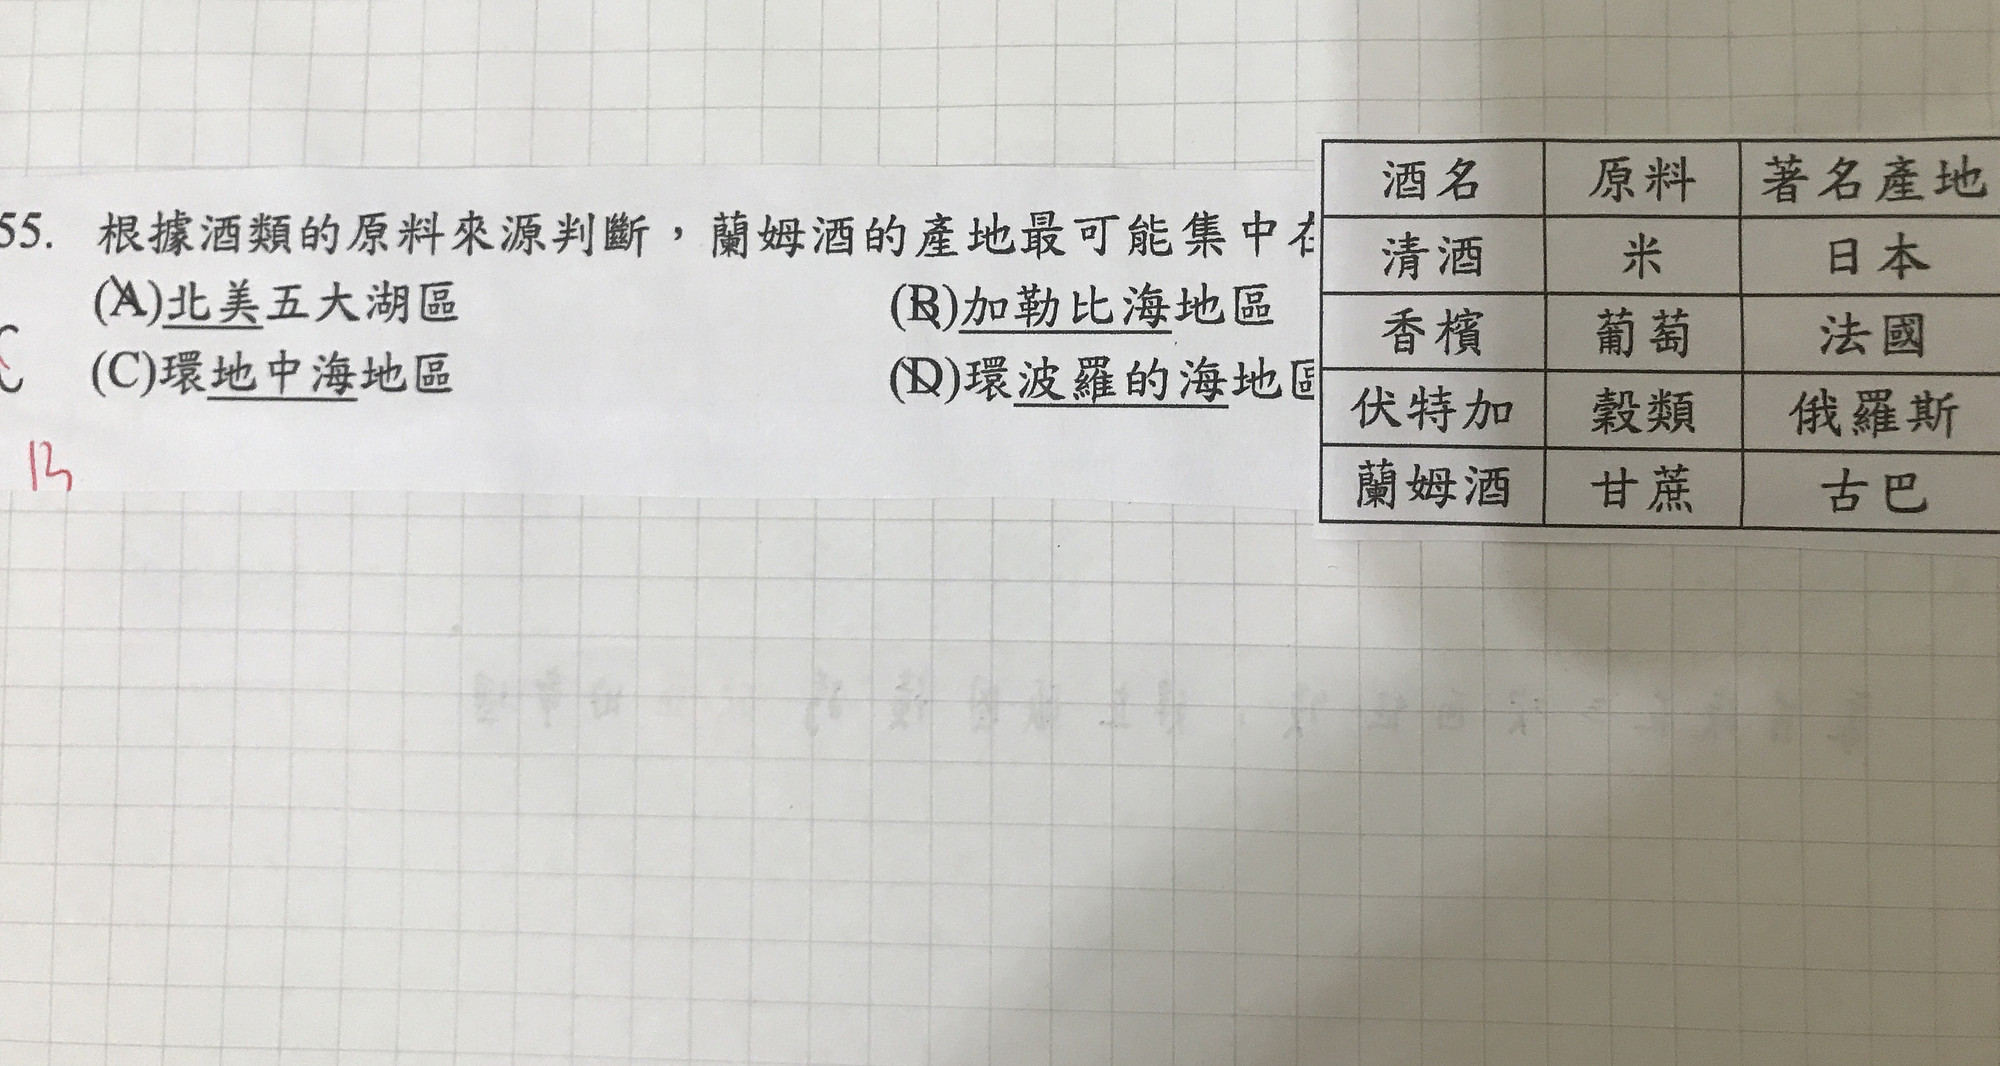 55. 根據酒類的原料來源判斷，蘭姆酒的產地最可能集中在
(A)北美五大湖區
(B)加勒比海地區
(C)環地中海地區
(D)環波羅的海地區
C
B
酒名 原料 著名產地
清酒 米 日本
香檳 葡萄 法國
伏特加 穀類 俄羅斯
蘭姆酒 甘蔗 古巴